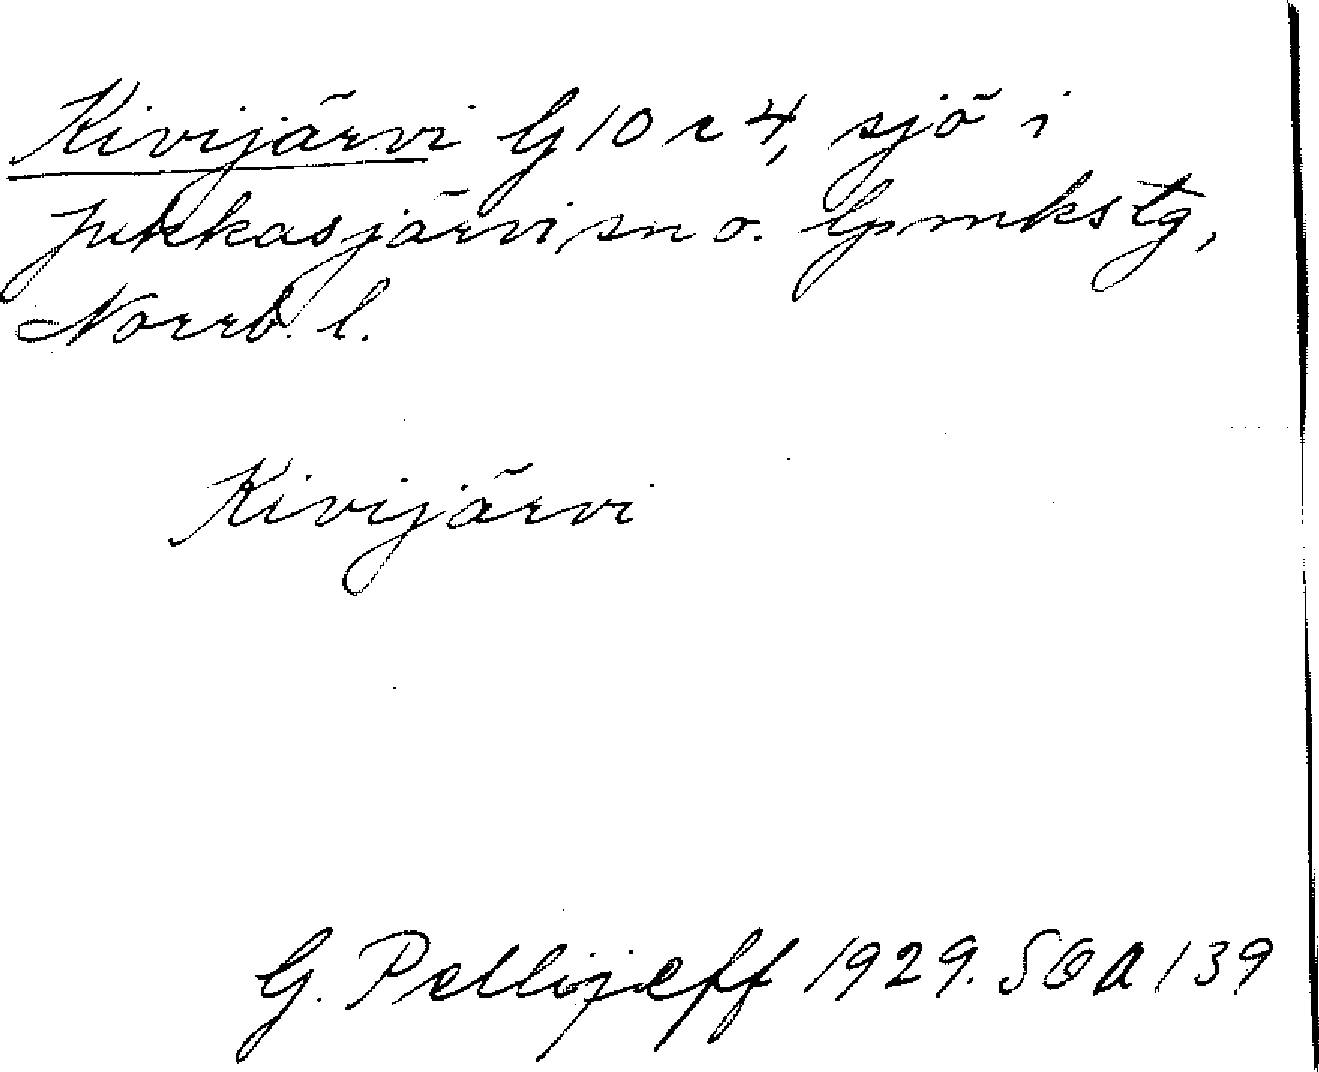 Kivijärvi G10 r 4, sjö i
Jukkasjärvi sn o. Gpmkstg,
Norrb. l.
Kivijärvi
G. Pellijeff 1929. SOA 139